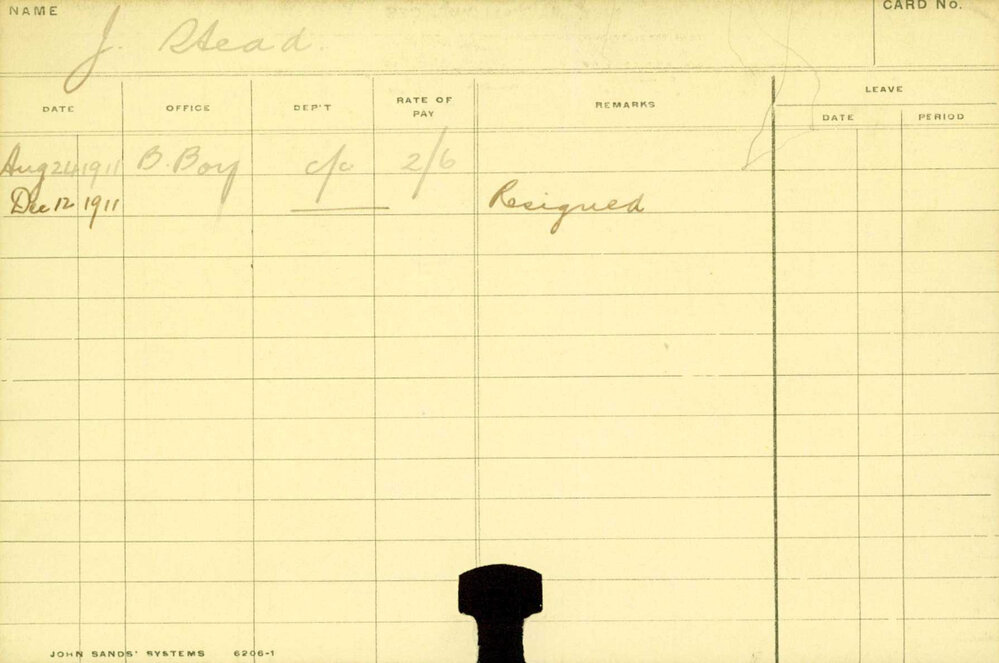 NAME J. Stead. CARD No.
DATE OFFICE DEP'T RATE OF PAY REMARKS LEAVE
DATE PERIOD
Aug 24 1911 B. Boy c/c 2/6
Dec 12 1911 Resigned
JOHN SANDS' SYSTEMS 6206-1